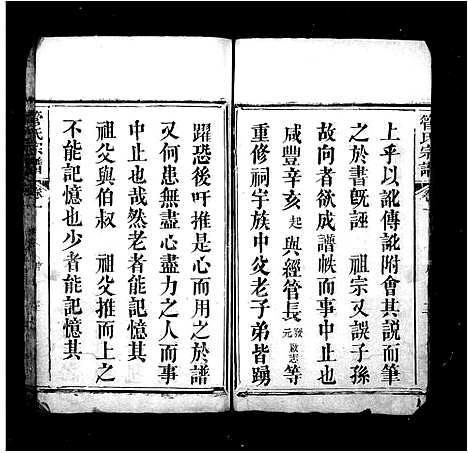 上乎以訛傳訛附會其說而筆
之於書旣誣　祖宗又誤子孫
故向者欲成譜帙而事中止也
咸豐辛亥起與經管長發元啟志等
重修祠宇族中父老子弟皆踴
躍恐後吁推是心而用之於譜
又何患無盡心盡力之人而事
中止也哉然老者能記憶其
祖父與伯叔　祖父推而上之
不能記憶也少者能記憶其
管氏宗譜
卷一
管氏宗譜
卷一